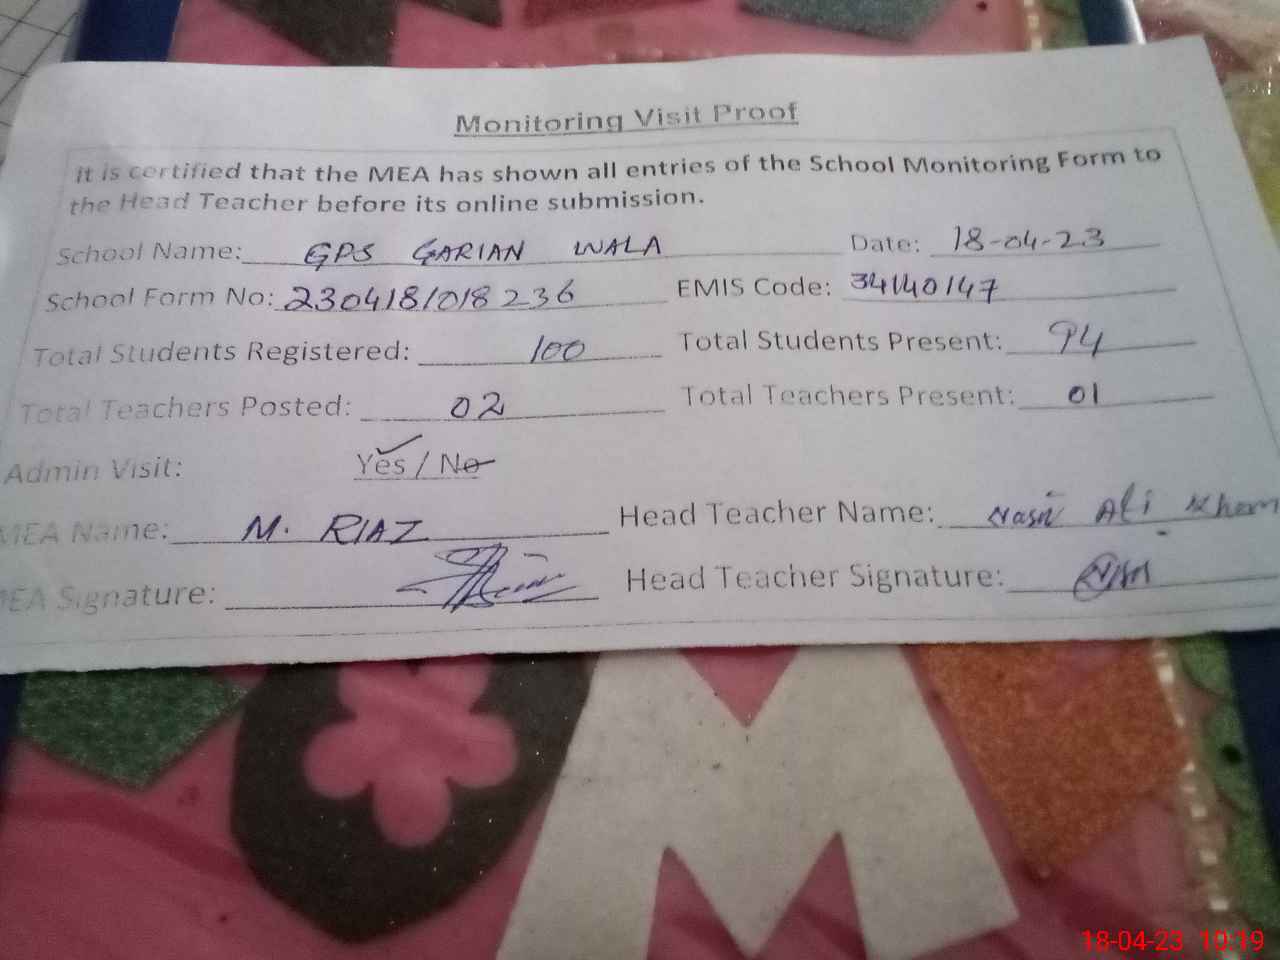 Monitoring Visit Proof
it is certified that the MEA has shown all entries of the School Monitoring Form to
the Head Teacher before its online submission.
School Name: GPS GARIAN WALA Date: 18-04-23
School Form No: 2304181018236 EMIS Code: 34140147
Total Students Registered: 100 Total Students Present: 94
Total Teachers Posted: 02 Total Teachers Present: 01
Admin Visit: Yes / No
MEA Name: M. RIAZ Head Teacher Name: Nasir Ali Khan
MEA Signature: Head Teacher Signature:
M
18-04-23 10:19